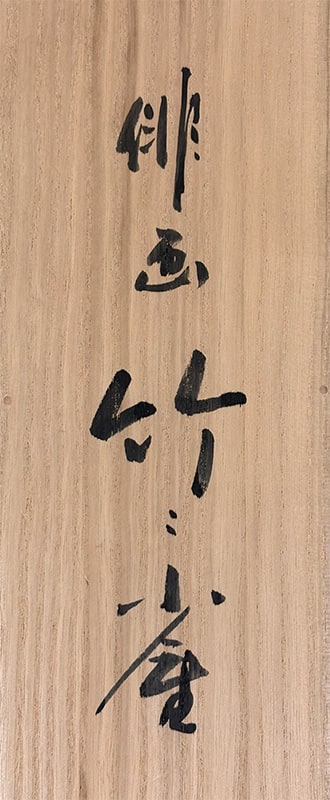 俳画竹ニ雀